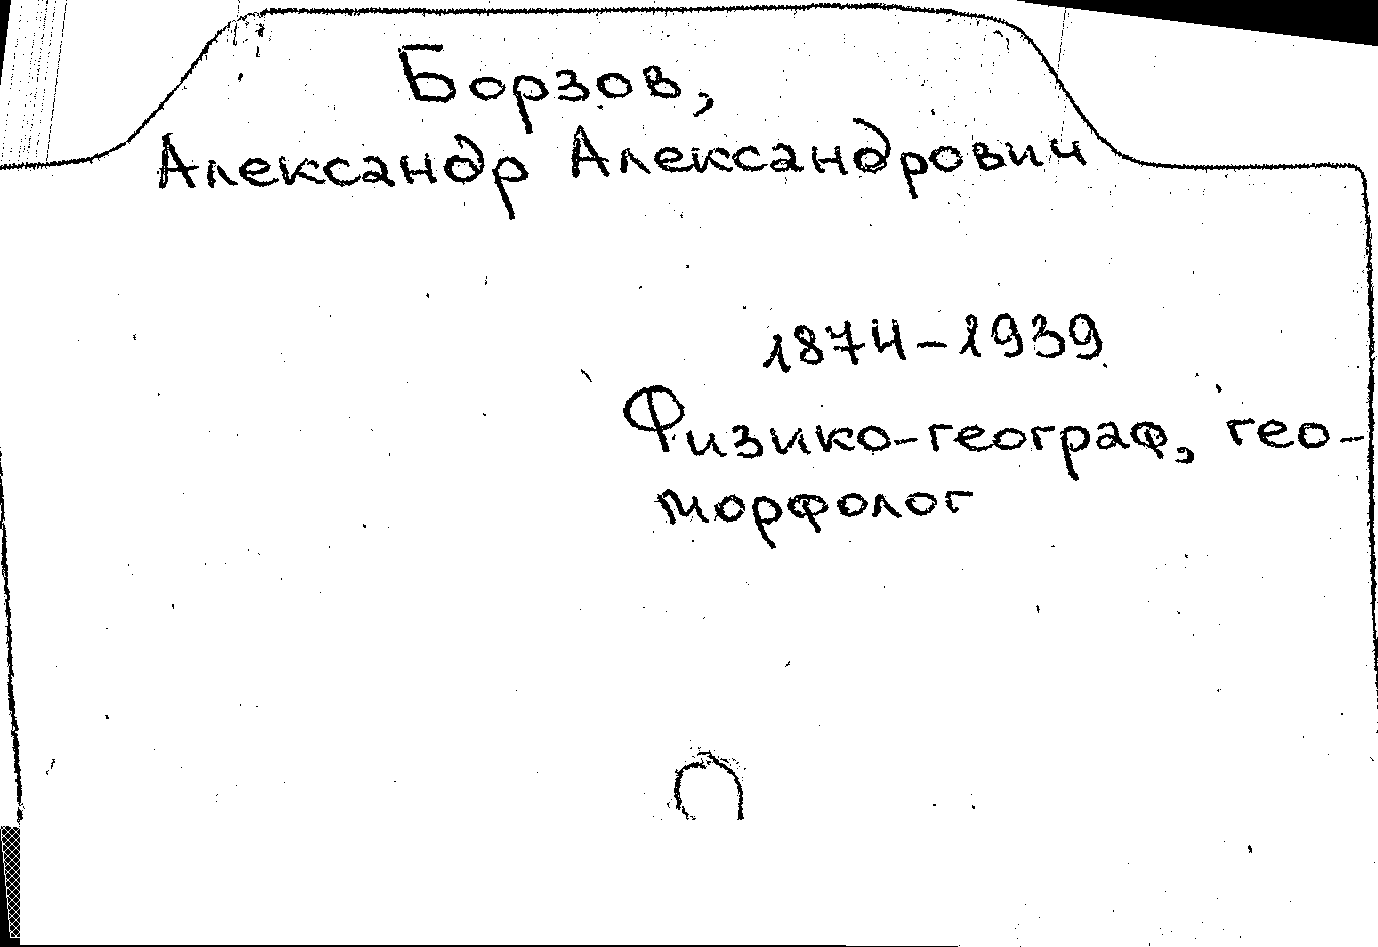 Борзов,
Александр Александрович
1874-1939
Физико-географ, гео-
морфолог